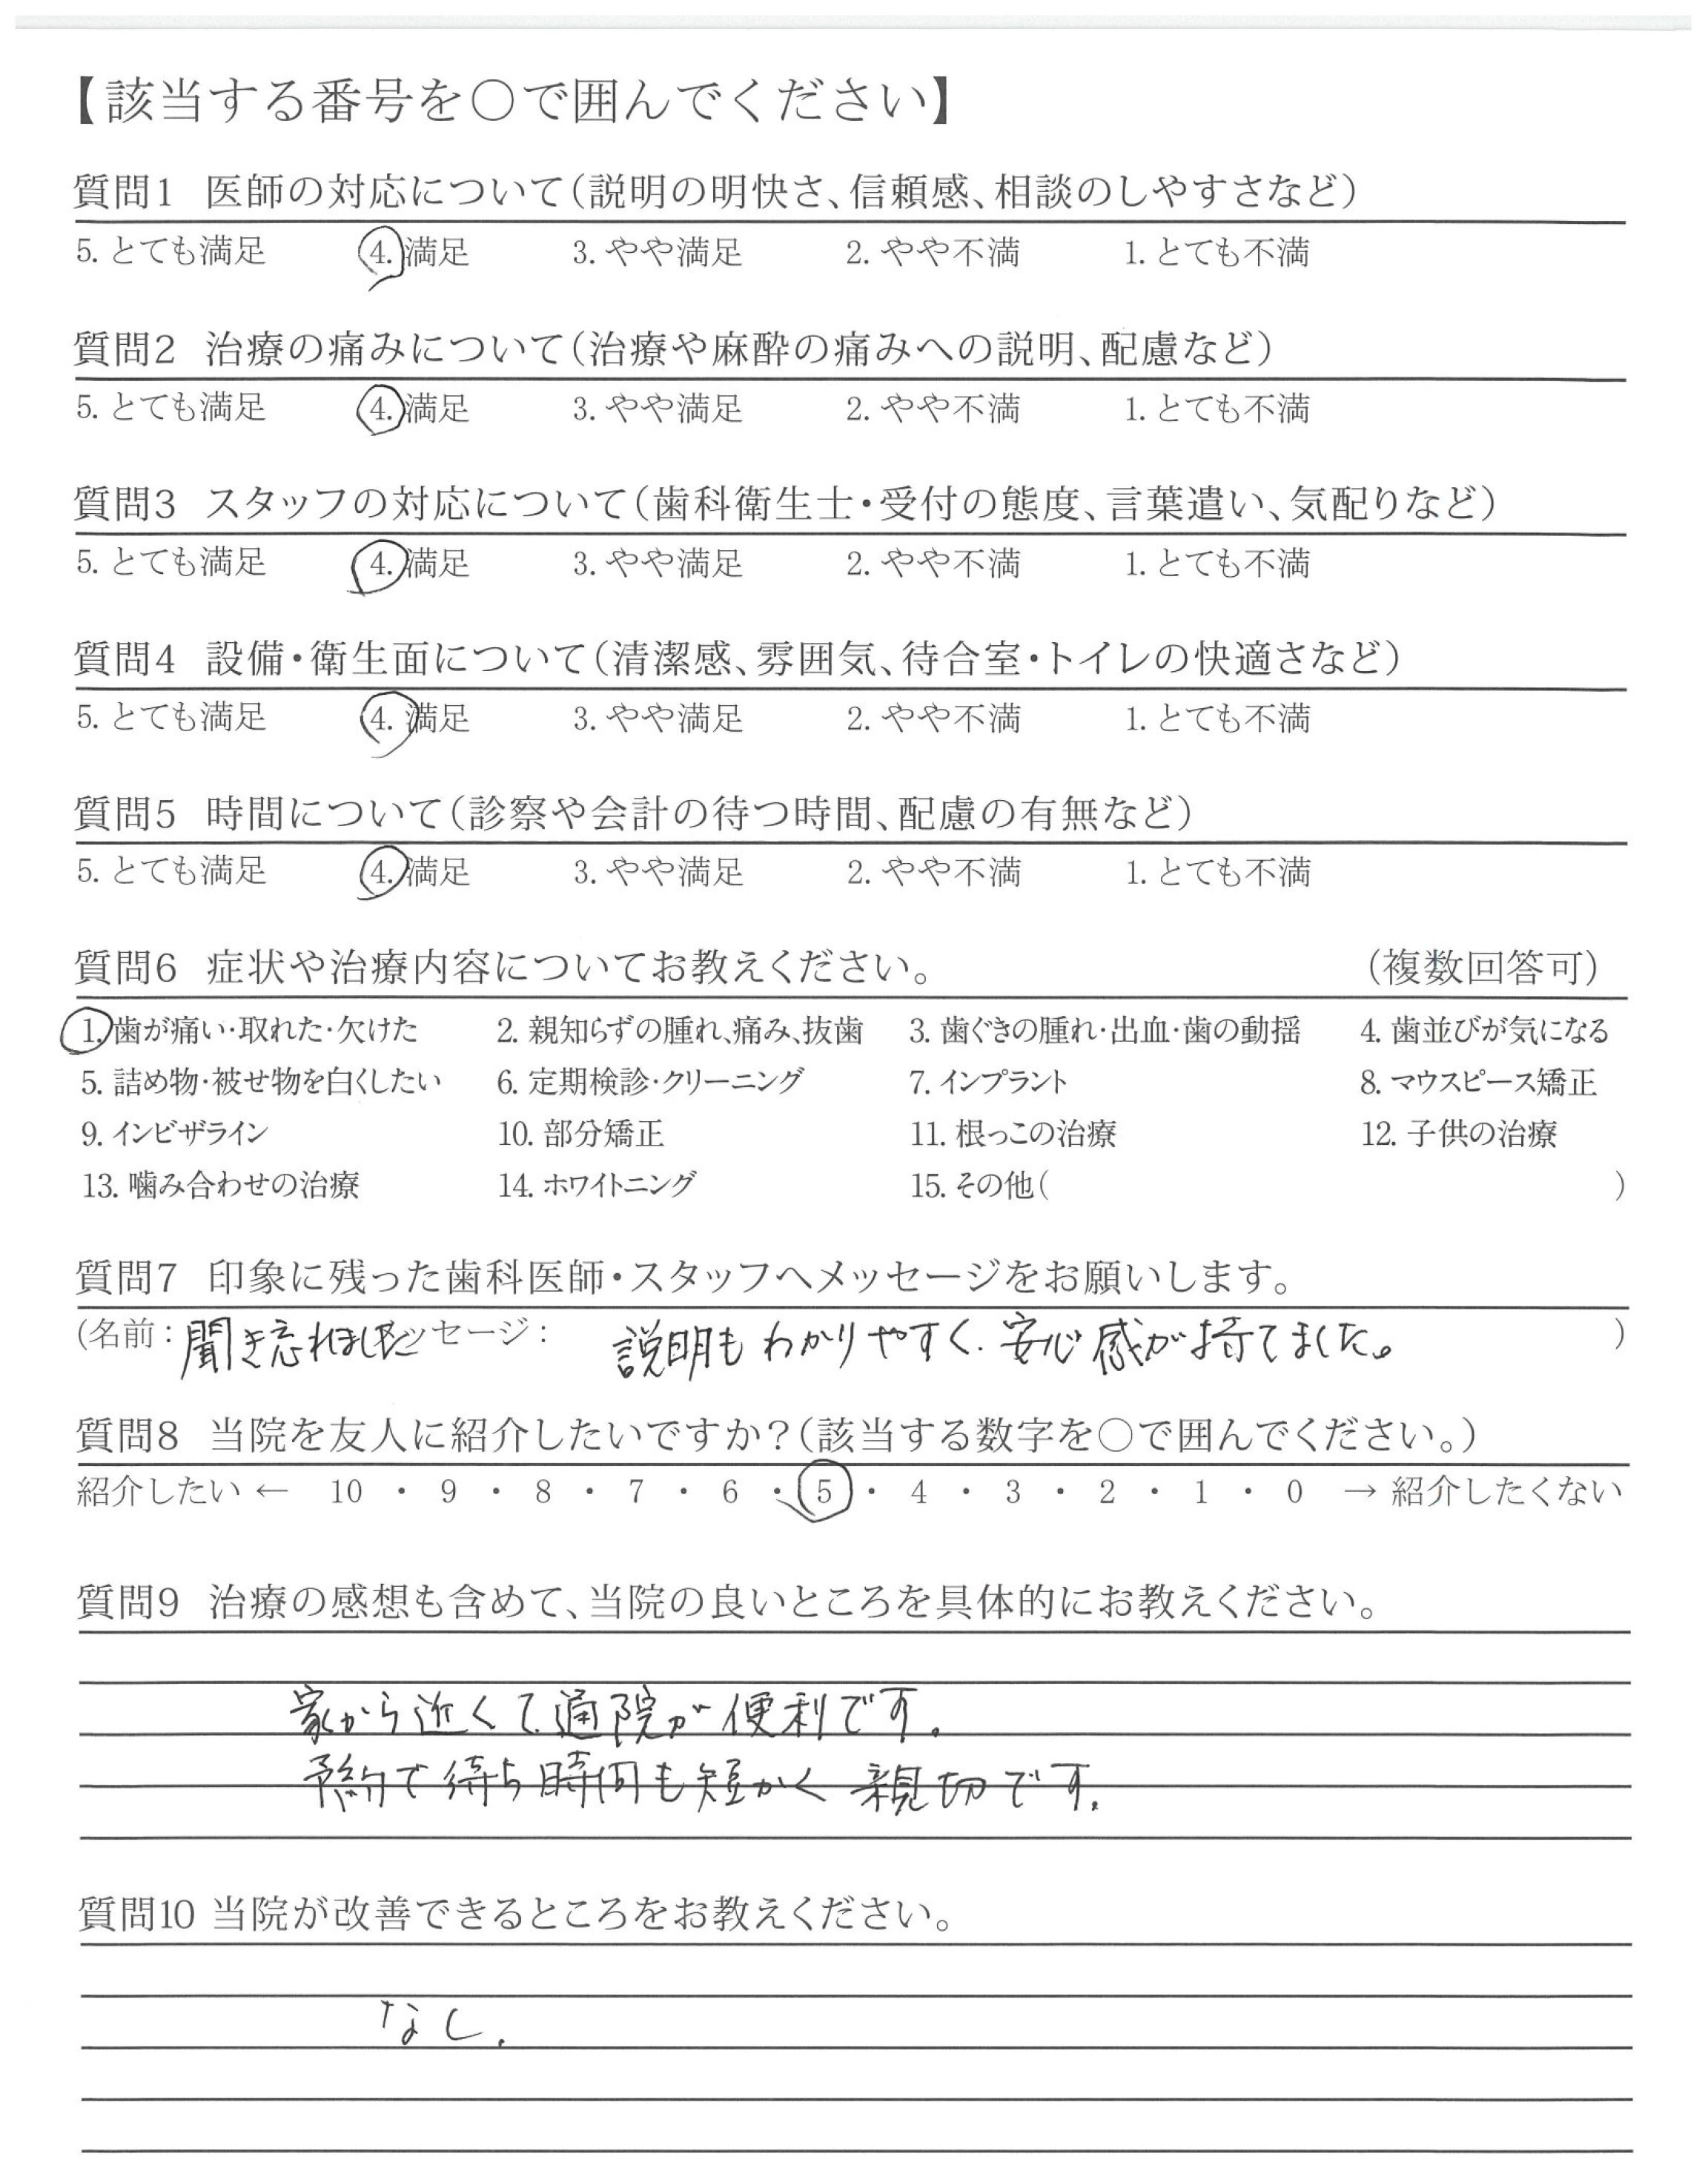 【該当する番号を○で囲んでください】
質問1 医師の対応について(説明の明快さ、信頼感、相談のしやすさなど)
5. とても満足 4. 満足 3. やや満足 2. やや不満 1. とても不満
質問2 治療の痛みについて(治療や麻酔の痛みへの説明、配慮など)
5. とても満足 4. 満足 3. やや満足 2. やや不満 1. とても不満
質問3 スタッフの対応について(歯科衛生士・受付の態度、言葉遣い、気配りなど)
5. とても満足 4. 満足 3. やや満足 2. やや不満 1. とても不満
質問4 設備・衛生面について(清潔感、雰囲気、待合室・トイレの快適さなど)
5. とても満足 4. 満足 3. やや満足 2. やや不満 1. とても不満
質問5 時間について(診察や会計の待つ時間、配慮の有無など)
5. とても満足 4. 満足 3. やや満足 2. やや不満 1. とても不満
質問6 症状や治療内容についてお教えください。 (複数回答可)
1. 歯が痛い・取れた・欠けた 2. 親知らずの腫れ、痛み、抜歯 3. 歯ぐきの腫れ・出血・歯の動揺 4. 歯並びが気になる
5. 詰め物・被せ物を白くしたい 6. 定期検診・クリーニング 7. インプラント 8. マウスピース矯正
9. インビザライン 10. 部分矯正 11. 根っこの治療 12. 子供の治療
13. 噛み合わせの治療 14. ホワイトニング 15. その他( )
質問7 印象に残った歯科医師・スタッフへメッセージをお願いします。
(名前: 聞き忘れました メッセージ: 説明もわかりやすく、安心感が持てました。 )
質問8 当院を友人に紹介したいですか?(該当する数字を○で囲んでください。)
紹介したい ← 10 ・ 9 ・ 8 ・ 7 ・ 6 ・ 5 ・ 4 ・ 3 ・ 2 ・ 1 ・ 0 → 紹介したくない
質問9 治療の感想も含めて、当院の良いところを具体的にお教えください。
家から近くて、通院が便利です。
予約で待ち時間も短かく 親切です。
質問10 当院が改善できるところをお教えください。
なし。